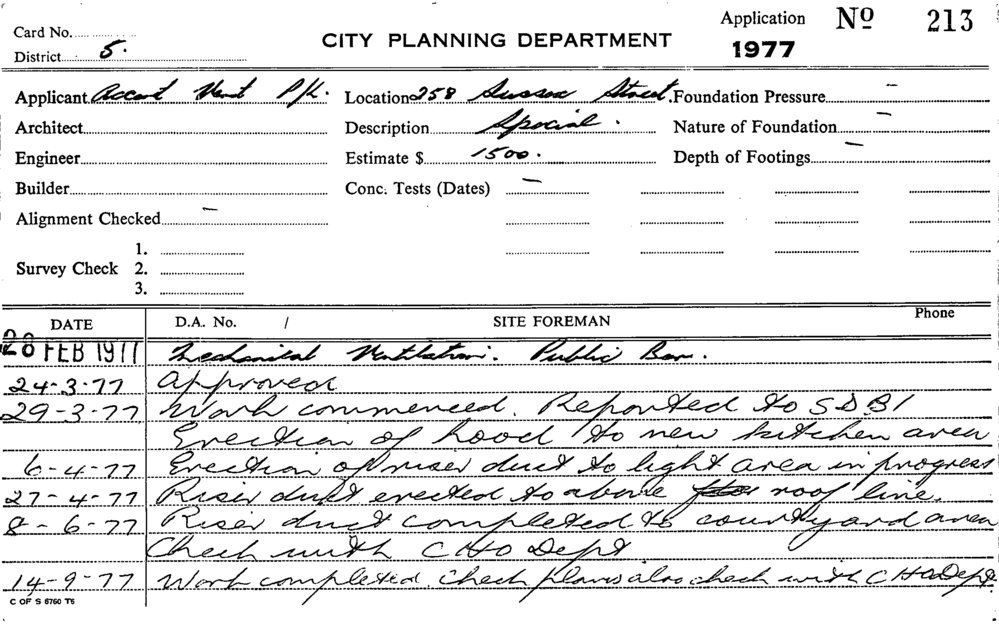 Card No. Application Nº 213
District 5. CITY PLANNING DEPARTMENT 1977
Applicant Accent Vent P/L. Location 258 Sussex Street. Foundation Pressure –
Architect Description Special. Nature of Foundation –
Engineer Estimate $ 1500. Depth of Footings –
Builder Conc. Tests (Dates) –
Alignment Checked –
1.
Survey Check 2.
3.
DATE D.A. No. / SITE FOREMAN Phone
28 FEB 1977 Mechanical Ventilation. Public Bar.
24-3-77 Approved
29-3-77 Work commenced. Reported to SDBI
Erection of hood to new kitchen area
6-4-77 Erection of riser duct to light area in progress
27-4-77 Riser duct erected to above roof line.
8-6-77 Riser duct completed to courtyard area
Check with CHO Dept
14-9-77 Work completed. Check plans also check with CHO Dept.
C OF S 6760 T5